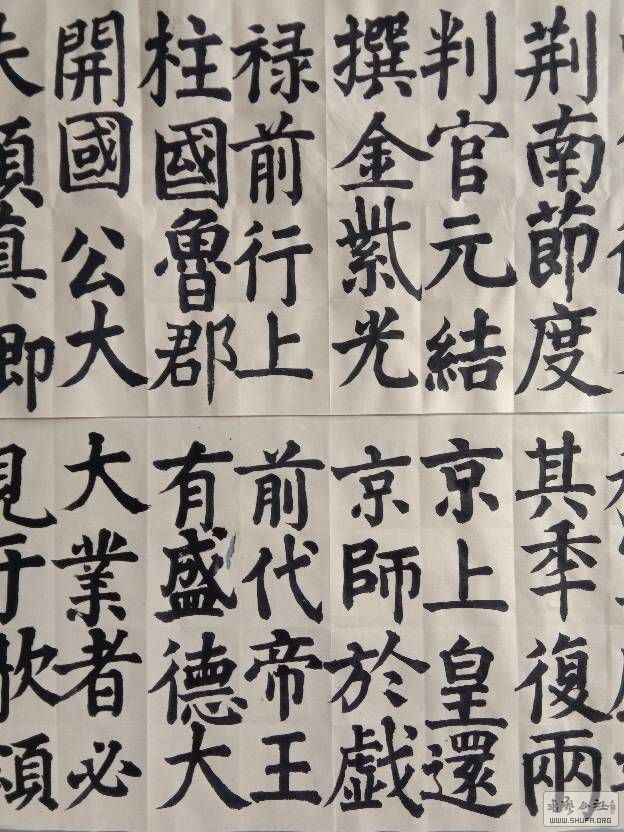 荆南節度
判官元結
撰金紫光
禄前行上
柱國魯郡
開國公大
夫顏真卿
其秊復兩
京上皇還
京師於戯
前代帝王
有盛德大
大業者必
見于歌頌
WWW.SHUFA.ORG